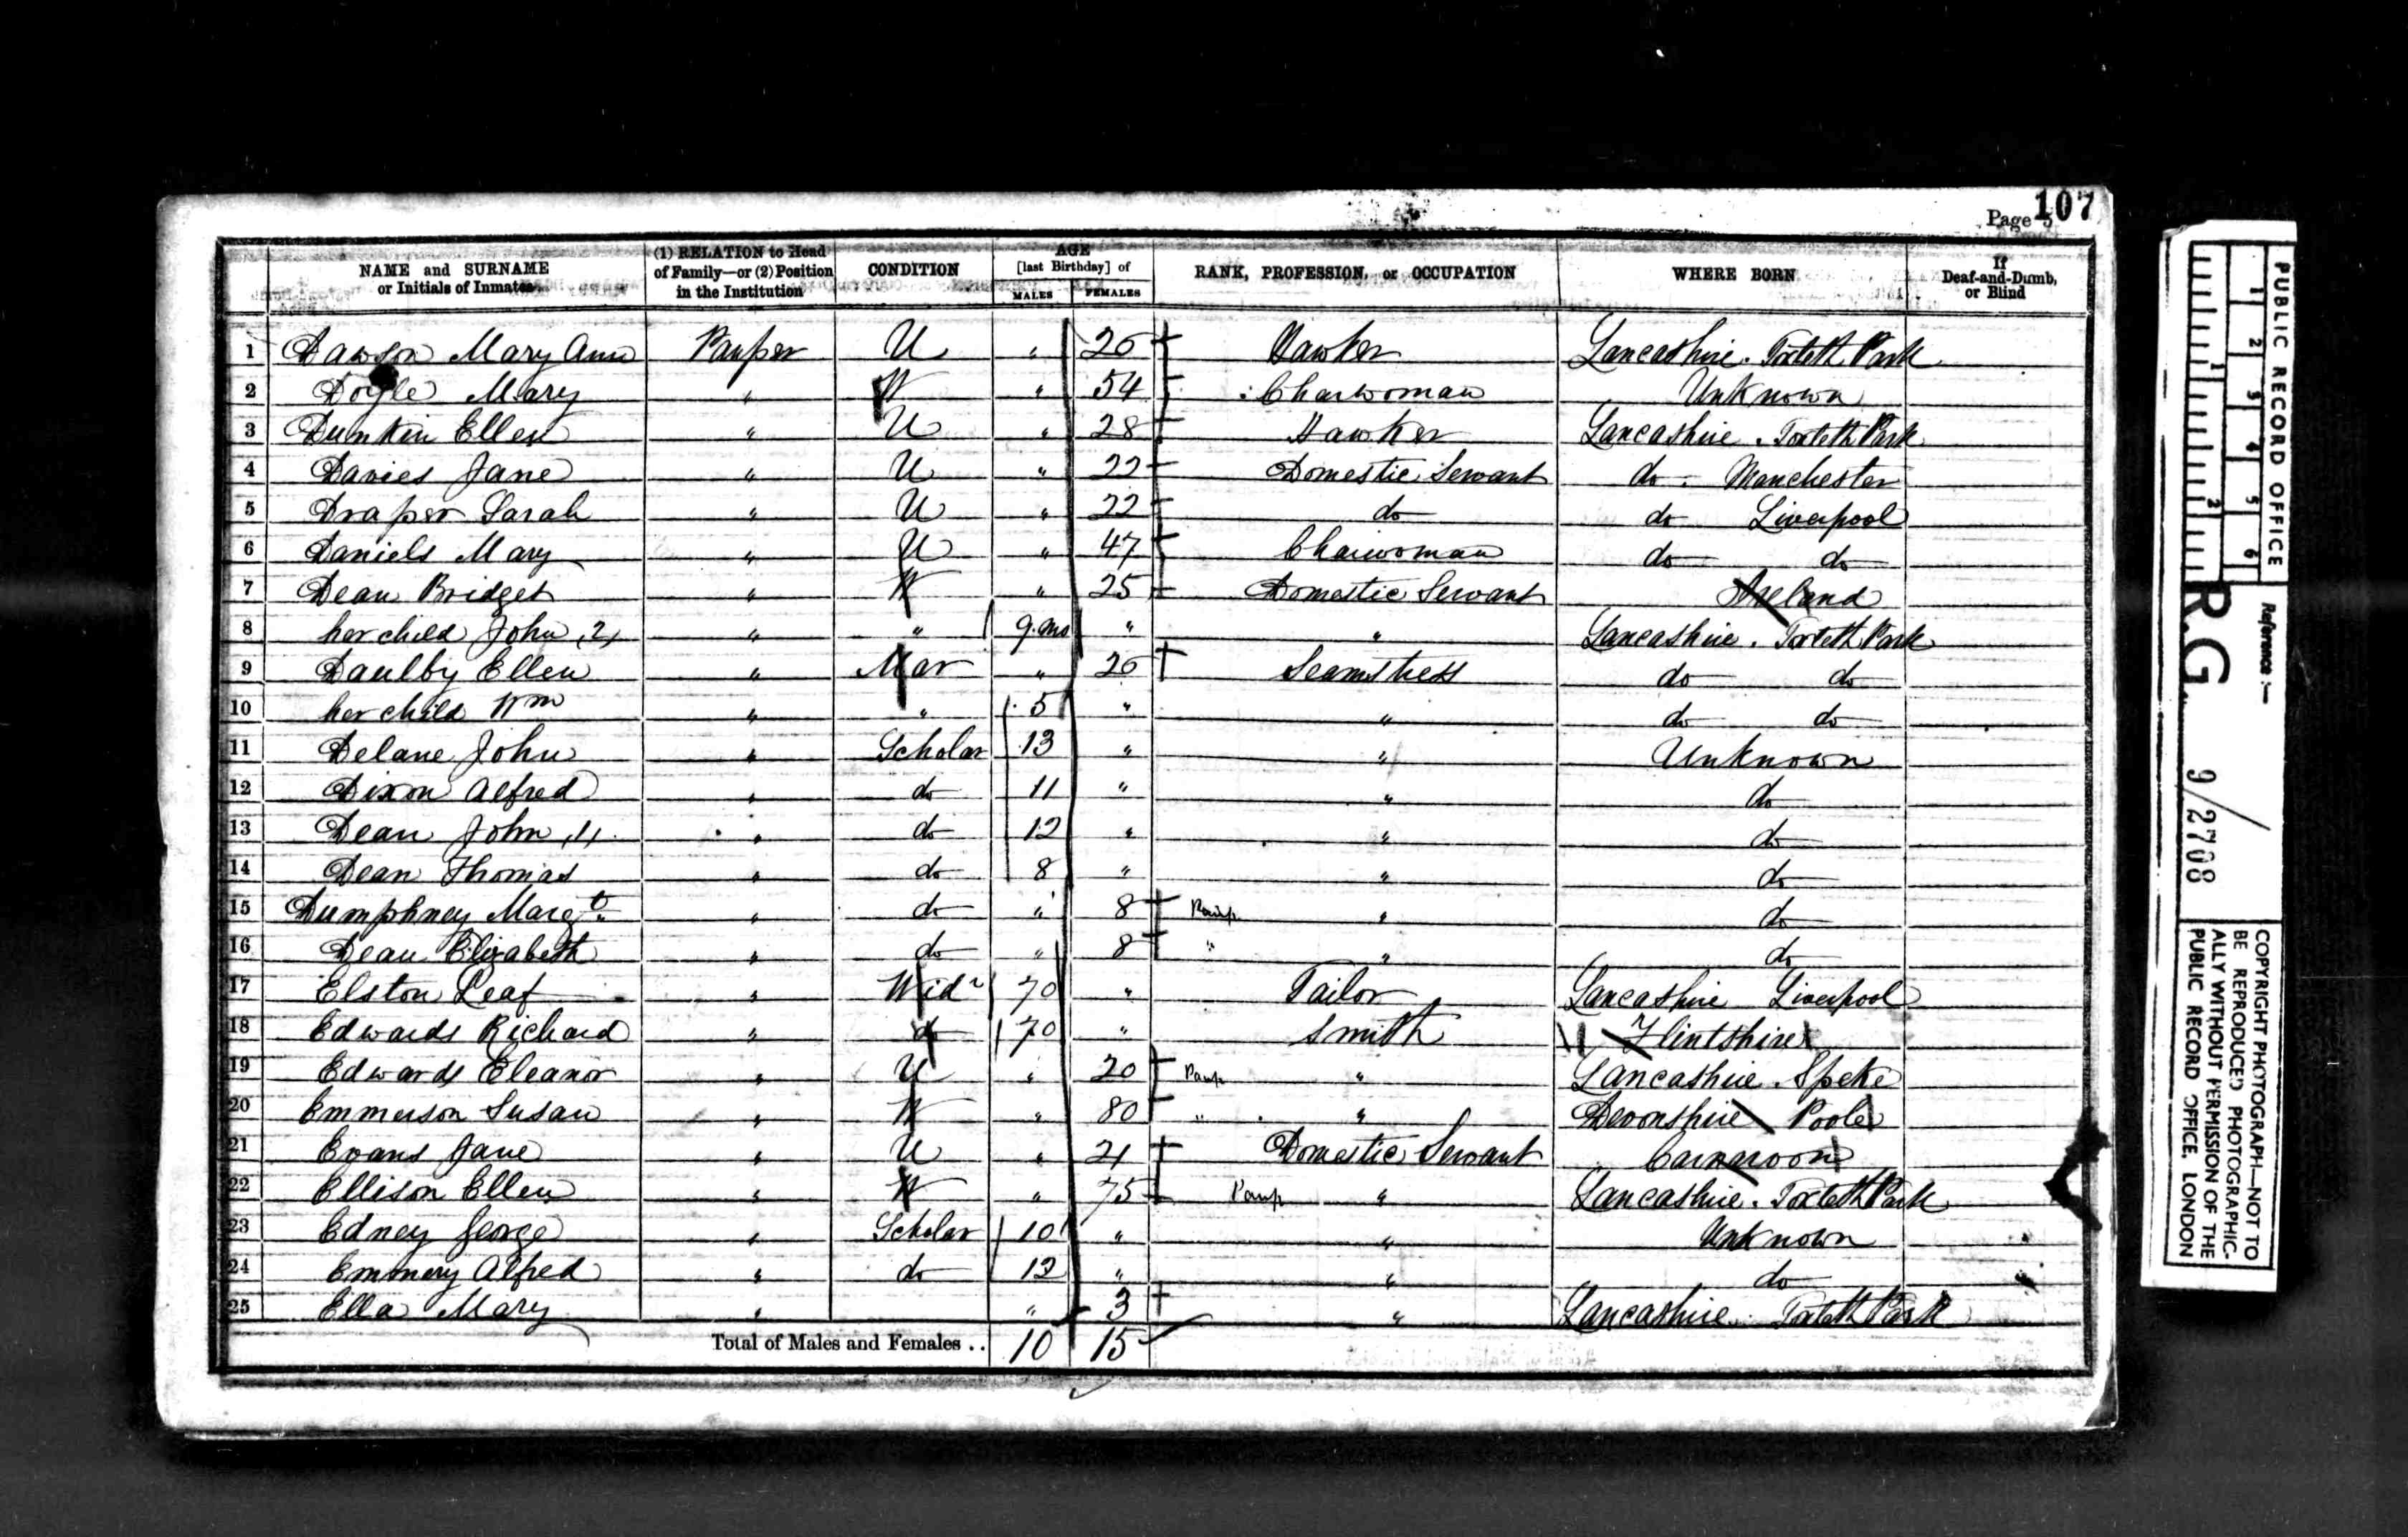 107
Page 5
NAME and SURNAME or Initials of Inmates
(1) RELATION to Head of Family—or (2) Position in the Institution
CONDITION
AGE [last Birthday] of
MALES
FEMALES
RANK, PROFESSION, or OCCUPATION
WHERE BORN
If Deaf-and-Dumb, or Blind
1 Dawson Mary Ann Pauper U " 26 Hawker Lancashire. Toxteth Park
2 Doyle Mary " W " 54 Charwoman Unknown
3 Dunkin Ellen " U " 28 Hawker Lancashire. Toxteth Park
4 Davies Jane " U " 22 Domestic Servant do. Manchester
5 Draper Sarah " U " 22 do do Liverpool
6 Daniels Mary " U " 47 Charwoman do do
7 Dean Bridget " W " 25 Domestic Servant Ireland
8 her child John, 2, " " 9.mo " " Lancashire. Toxteth Park
9 Daulby Ellen " Mar " 26 Seamstress do do
10 her child Wm " " 5 " " do do
11 Delane John " Scholar 13 " " Unknown
12 Dixon Alfred " do 11 " " do
13 Dean John, 1, " do 12 " " do
14 Dean Thomas " do 8 " " do
15 Dumphney Margt. " do " 8 Paup " do
16 Dean Elizabeth " do " 8 " " do
17 Elston Leaf " Widr 70 " Tailor Lancashire Liverpool
18 Edwards Richard " do 70 " Smith Flintshire
19 Edwards Eleanor " U " 20 Paup " Lancashire. Speke
20 Emmerson Susan " W " 80 " " Devonshire Poole
21 Evans Jane " U " 21 Domestic Servant Carnarvon
22 Ellison Ellen " W " 75 Paup " Lancashire. Toxteth Park
23 Edney George " Scholar 10 " " Unknown
24 Emmery Alfred " do 12 " " do
25 Ella Mary " " 3 " Lancashire. Toxteth Park
Total of Males and Females .. 10 15
PUBLIC RECORD OFFICE
1 2 3 4 5 6
1 2
Reference :—
R.G. 9/2708
COPYRIGHT PHOTOGRAPH—NOT TO
BE REPRODUCED PHOTOGRAPHIC-
ALLY WITHOUT PERMISSION OF THE
PUBLIC RECORD OFFICE, LONDON